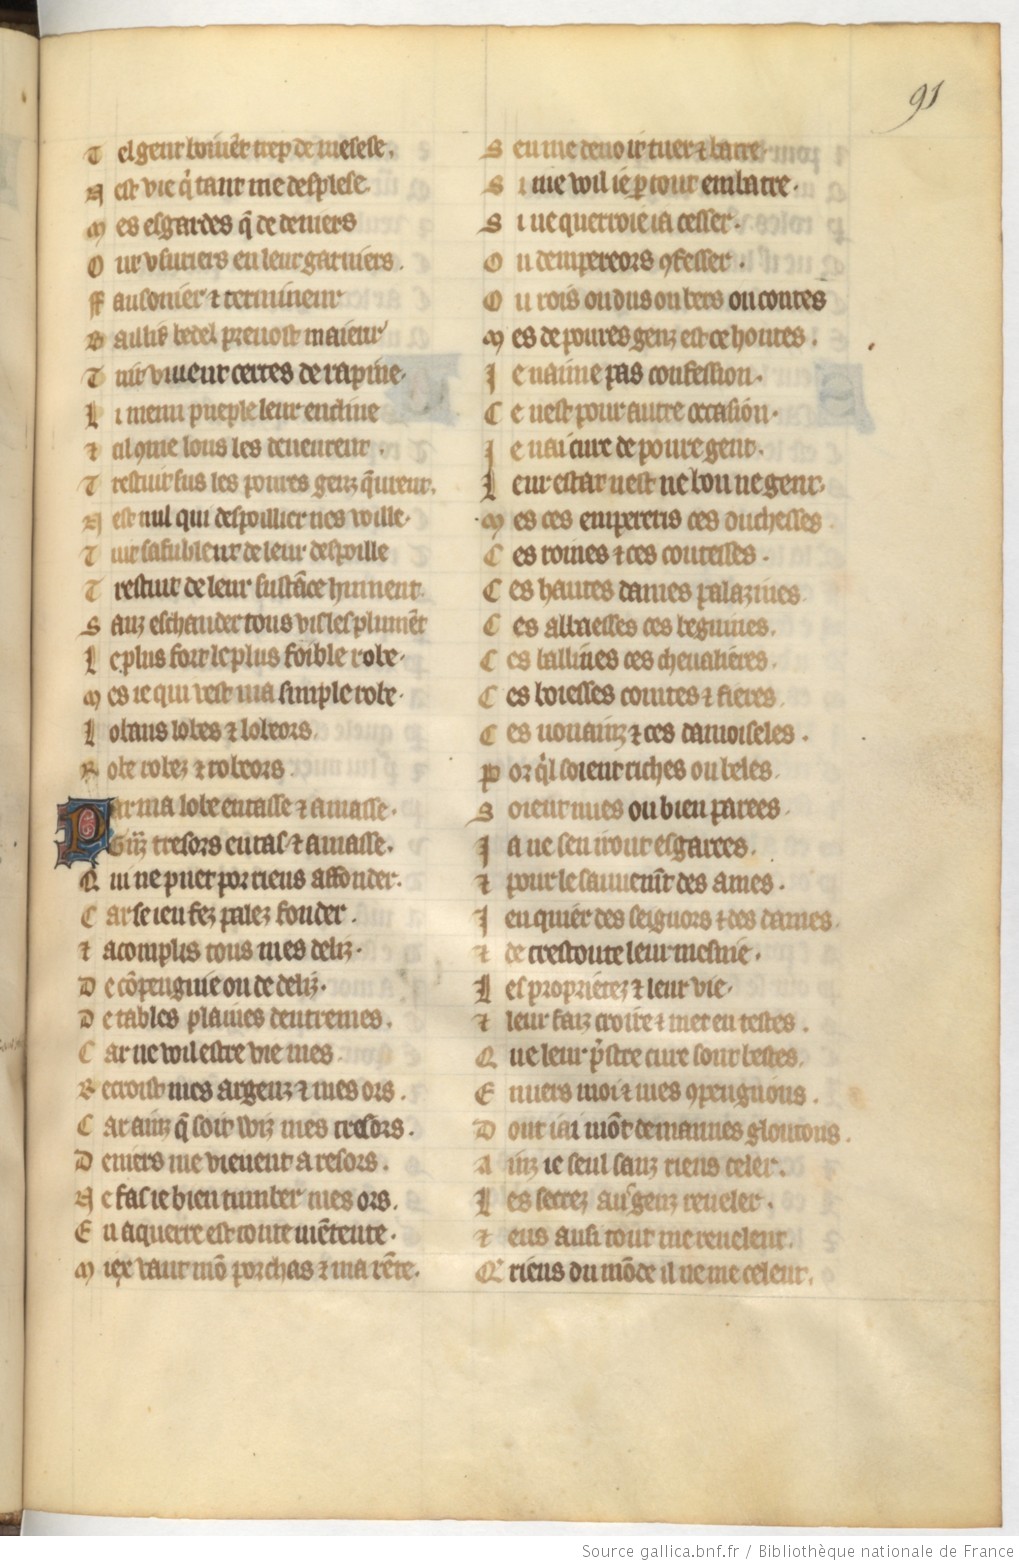 91
T el gent boiuẽt trop de mesese.
N est vie q̃ tant me desplese.
M es esgardes q̃ de deniers
O nt vsuriers en leur garniers.
ff ausonier ⁊ termineur
B aillif bedel preuost maieur
T uit viuent certes de rapine.
L i menu pueple leur encline
⁊ cil ꝯme lous les deueurent.
T restuit sus les poures genz q̃urent.
N est nul qui despoillier nes vuille.
T uit safublent de leur despoille
T restuit de leur sustãce hument.
S anz eschauder tous vis les plumẽt
L e plus fort le plus foible robe.
M es ie qui vest ma simple robe.
L obans lobes ⁊ lobeors.
R obe robez ⁊ robeors.
P ar ma lobe entasse ⁊ amasse.
G rãz tresors en tas ⁊ amasse.
Q ui ne puet por riens affonder.
C ar se ien fez palez fonder.
⁊ acomplis tous mes deliz.
D e cõpengnie ou de deliz.
D e tables plaines dentremes.
C ar ne vuil estre vie mes
R ecroist mes argenz ⁊ mes ors.
C ar ainz q̃ soit wiz mes tresors.
D eniers me vienent a resors.
N e fas ie bien tumber mes ors.
E n aquerre est toute mẽtente.
M iex vaut mõ porchas ⁊ ma rẽte.
S en me deuoit tuer ⁊ batre
S i me wil ie ꝑ tout embatre.
S i ne querroie ia cesser.
O u dempereors ꝯfesser.
O u rois ou dus ou bers ou contes
M es de poures genz est ce hontes.
J e naime pas confession.
C e nest pour autre occasion.
J e nai cure de poure gent.
L eur estat nest ne bon ne gent.
M es ces empereris ces duchesses
C es roines ⁊ ces contesses.
C es hautes dames palazines
C es abbaesses ces beguines.
C es baillíues ces cheualieres.
C es boiesses cointes ⁊ fieres
C es nonainz ⁊ ces damoiseles.
P or q̃l soient riches ou beles.
S oient nues ou bien parees.
J a ne sen iront esgarees.
⁊ pour le sauuemẽt des ames.
J enquier des seignors ⁊ des dames.
⁊ de trestoute leur mesnie.
L es proprietez ⁊ leur vie.
⁊ leur faiz croire ⁊ met en testes.
Q ue leur p̃stre cure sont bestes.
E nuers moi ⁊ mes ꝯpengnons.
D ont iai mõt de mauues gloutons.
A inz ie seul sanz riens celer.
L es secrez aus genz reueler.
⁊ eus ausi tout me reuelent.
Q̃ riens du mõde il ne me celent.
Source gallica.bnf.fr / Bibliothèque nationale de France